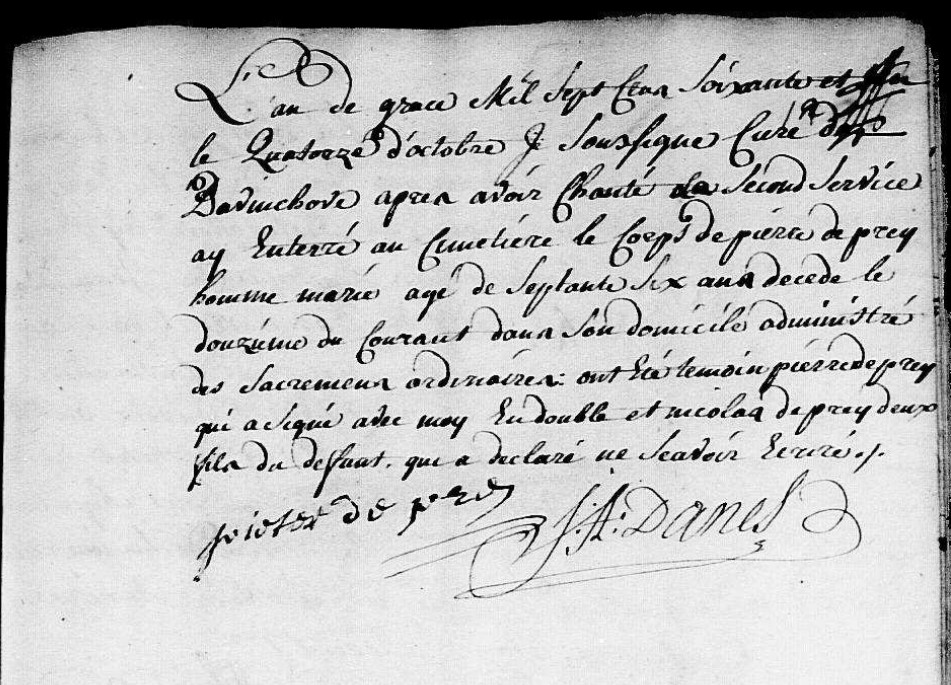 L'an de grace Mil Sept Cens Soixante et
le Quatorze d'octobre Je Soussigné Curé de
Bavinchove apres avoir Chanté le Second Service
ay Enterré au Cimetiére le Corps de piérre de prey
homme marié agé de Septante Six ans decedé le
douziéme du Courant dans Son domicilé administré
des Sacremens ordinaires: ont été temoin piérre de prey
qui a Signé avec moy En double et nicolas de prey deux
fils du deffunt. qui a declaré ne Scavoir Ecriré./.
pieter de prey
J: A: Danes